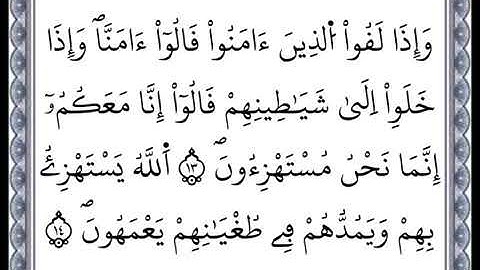 وَإِذَا لَقُواْ اُ۬لذِينَ ءَامَنُواْ قَالُوٓاْ ءَامَنَّاۖ وَإِذَا
خَلَوِاْ اِلَىٰ شَيَٰطِينِهِمْ قَالُوٓاْ إِنَّا مَعَكُمُۥٓ
إِنَّمَا نَحْنُ مُسْتَهْزِءُونَۖ ١٣ اَ۬للَّهُ يَسْتَهْزِئُ
بِهِمْ وَيَمُدُّهُمْ فِے طُغْيَٰنِهِمْ يَعْمَهُونَۖ ١٤